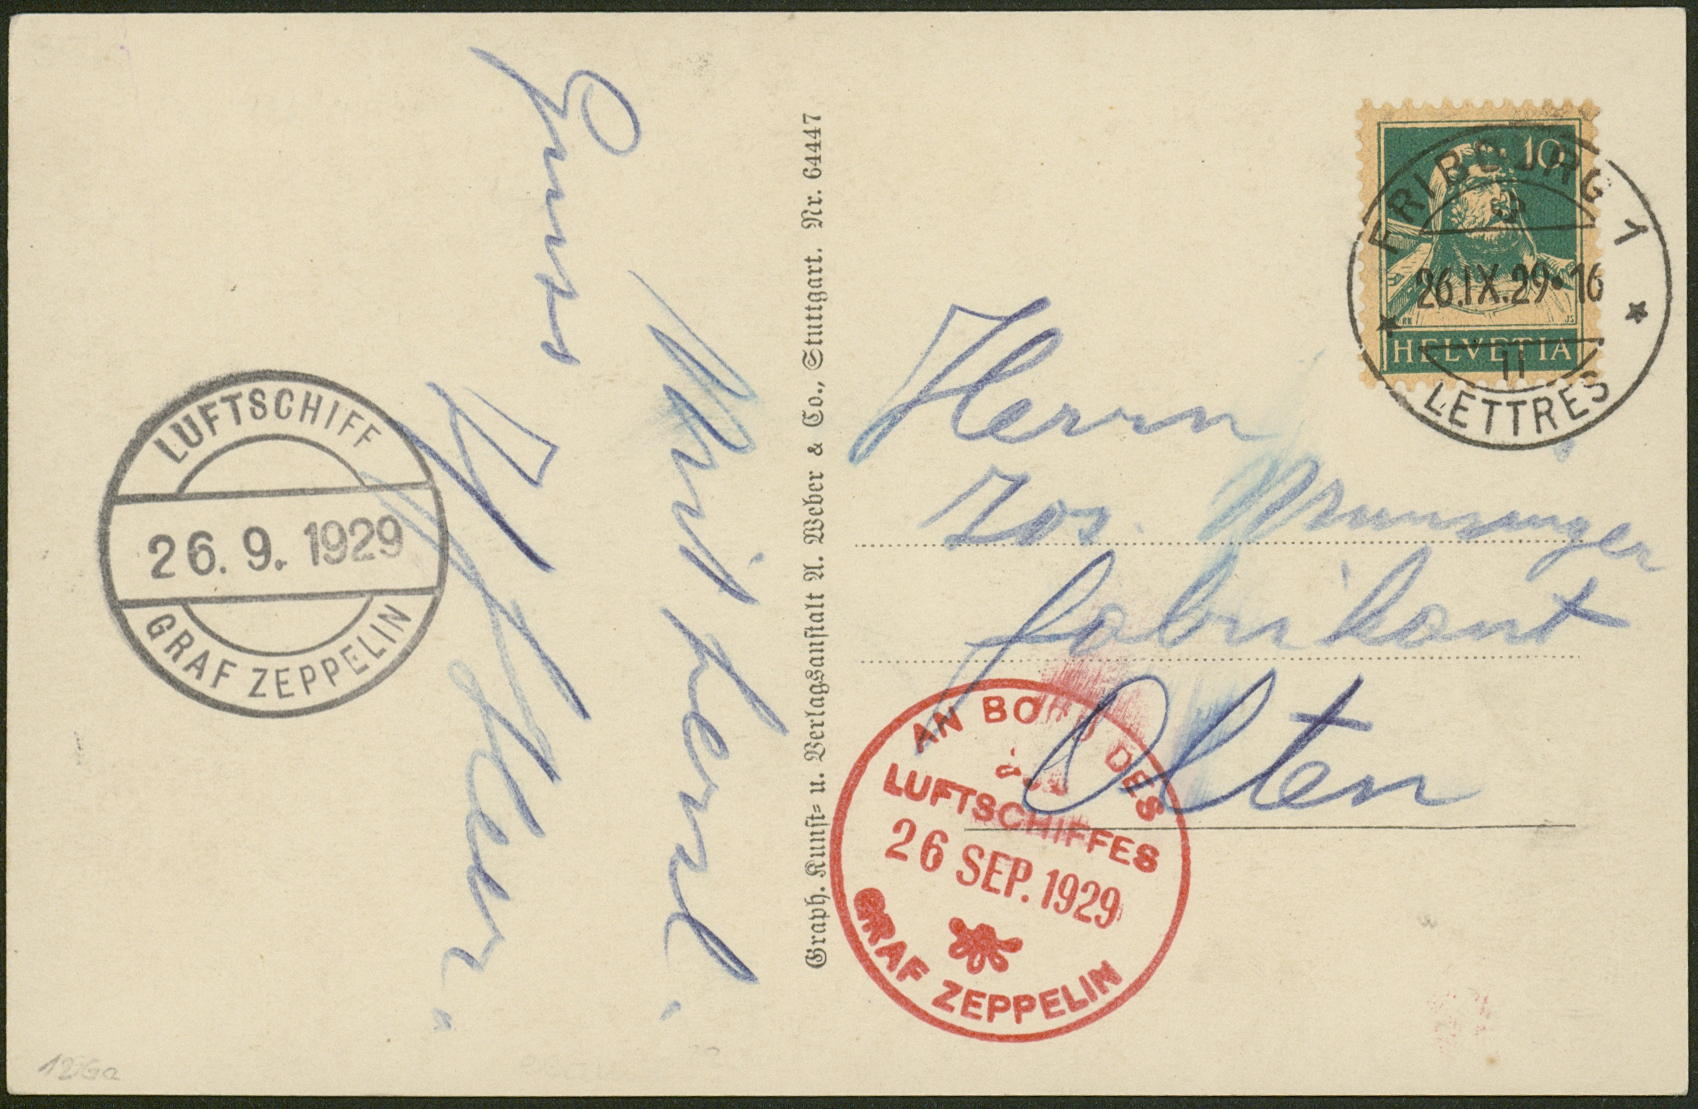 10
HELVETIA
FRIBOURG 1
26.IX.29•16
11
LETTRES
LUFTSCHIFF
26. 9. 1929
GRAF ZEPPELIN
Gruss
Graph. Kunst= u. Verlagsanstalt A. Weber & Co., Stuttgart. Nr. 64447
Herrn
Jos. Munzinger
fabrikant
Olten
AN BORD DES
LUFTSCHIFFES
26 SEP. 1929
GRAF ZEPPELIN